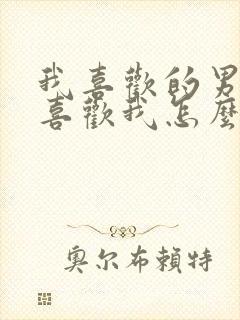 我喜歡的男
喜歡我怎麼
奧尔布賴特